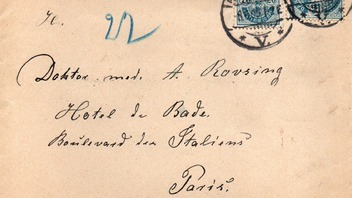 H.
22
Doktor med. A. Rovsing
Hotel de Bade.
Boulevard des Italiens
Paris.
V.